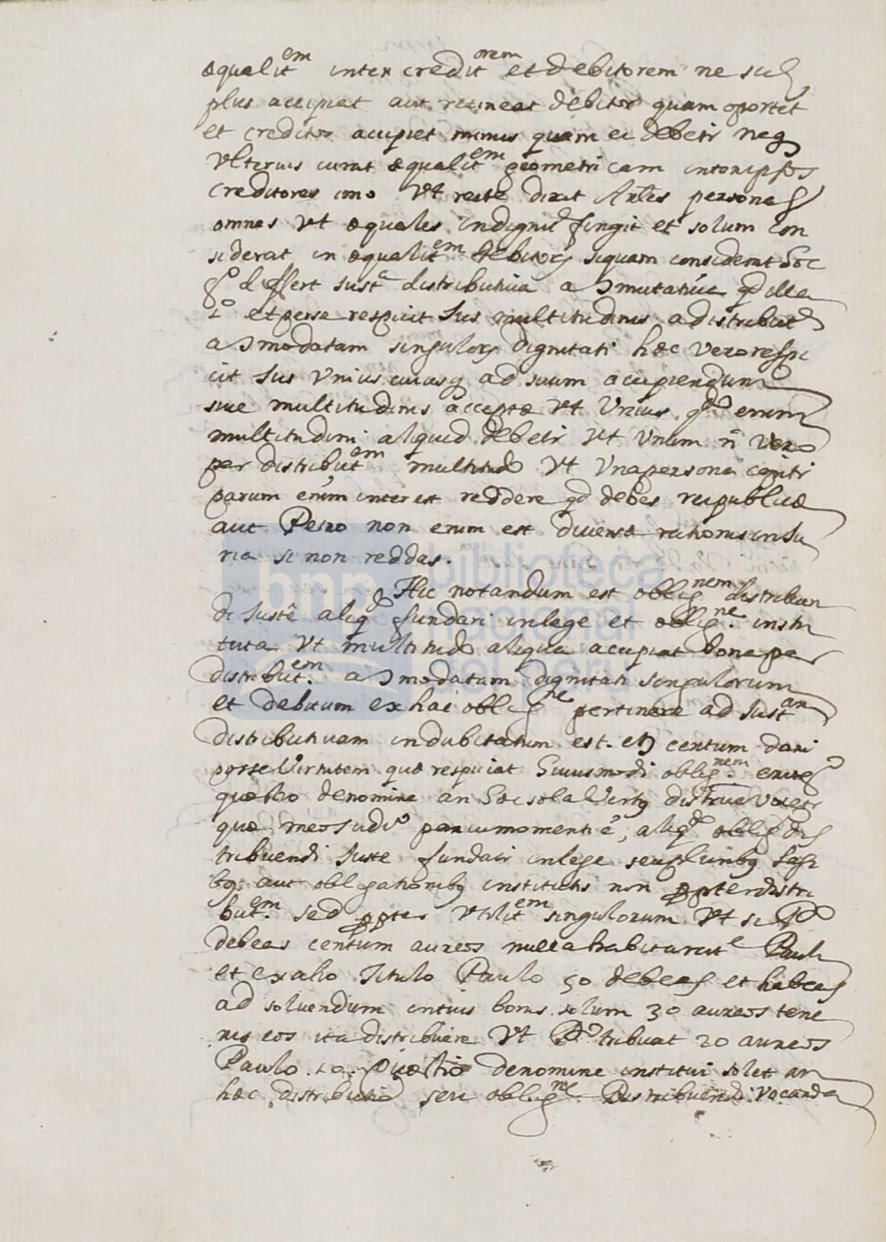 æqualit^em inter credit^orem et debitorem ne scil
plus accipiat aut retineat debitor quam oportet
et creditor accipiet minus quam ei debetr neq
Vlterius curat æqualit^em geometricam inter ipsos
Creditores imo Vt recte dixit Arles personas
omnes Vt æquales indignit fingit et solum con
siderat inæqualit^em debitorum siquam considerat Hoc
g^o differt Just^a distributiua a Cmutatiua qd illa
1^o et perse respicit Jus multitudinis ad distribut
aCmodatam singulorum dignitati hæc vero respi
cit Jus Vnius cuiusq ad suum accipiendum
siue multitudinis acceptæ Vt Vnius. enim
multitudini aliquid debetr Vt Vnum ñ vero
per distribut^em multitudo Vt Vna persona
parum enim interest reddere qd debes reipublicæ
aut Petro non enim est diuersæ rationis inJu
ria si non reddas.
Hic notandum est oblig^nem distribuen
di Justè aliq^o fundari in lege et oblig^ne insti
tuta Vt multitudo aliqua accipiat bona per
distribut^em aCmodatam dignitati singulorum
et debitum ex hac oblig^ne pertinere ad Just^am
distributiuam indubitatum est. et centum dari
posse Virtutem quæ respiciat huiusmodi oblig^nem
quæstio de nomine an hæc sola Virtus
quæ meo Judi^o parui momenti e, aliq^o oblig
tribuendi Juste fundatr in lege seu
bq aut obligationibq institutis non ppter distri
but^em sed ppter Vtilit^em singulorum Vt si P^o
debeas centum aureos Pauli
et ex alio Titulo Paulo 50 debeas et habeas
ad soluendum in tuis bonis solum 30 aureos tene
ris eos ita distribuere Vt P^o tribuat 20 aureos
Paulo 10. Quæstio de nomine institui solet an
hæc distributio seu oblig^ne Distribuendi Vocanda
biblioteca
nacional
del Perú